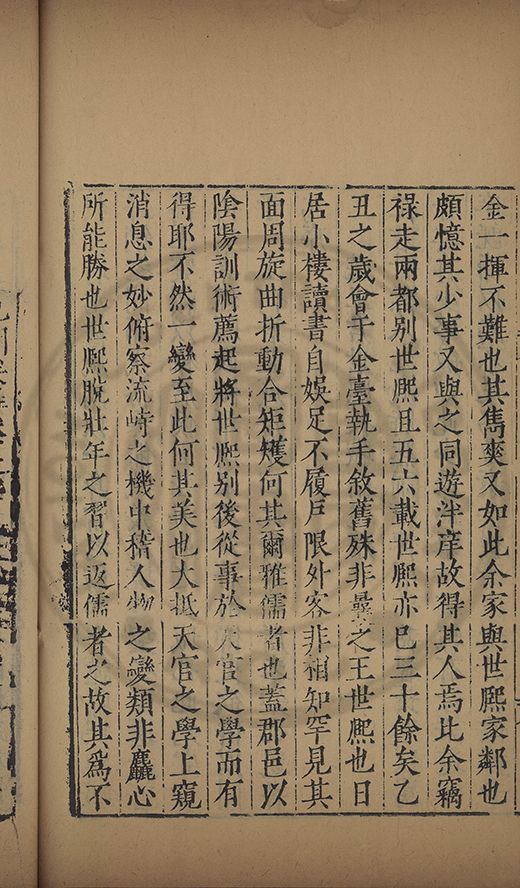 金一揮不難也其雋爽又如此余家與世熈家鄰也
頗憶其少事又與之同遊泮庠故得其人焉比余竊
祿走兩都別世熈且五六載世熈亦已三十餘矣乙
丑之歲會于金臺執手敘舊殊非曩之王世熈也日
居小樓讀書自娛足不履戶限外客非相知罕見其
面周旋曲折動合矩矱何其爾雅儒者也蓋郡邑以
陰陽訓術薦起將世熈別後從事於天官之學而有
得耶不然一變至此何其美也大抵天官之學上窺
消息之妙俯察流峙之機中稽人物之變類非麤心
所能勝也世熈脫壯年之習以返儒者之故其爲不